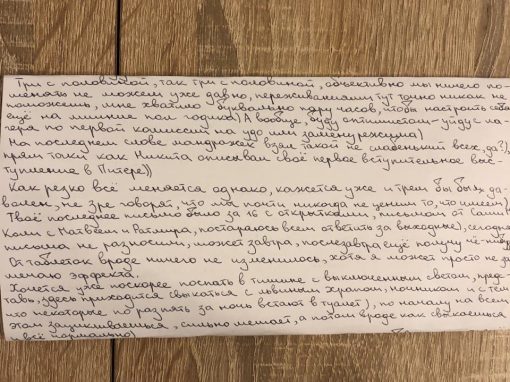 Три с половиной, так три с половиной, объективно мы ничего по-
менять не можем уже давно, переживаниями тут точно никак не
поможешь, мне хватило буквально пары часов, чтобы настроить себя
ещё на лишние пол годика) А вообще, буду оптимистом - уйду с ла-
геря по первой комиссии на удо или замену режима)
На последнем слове мандражек взял такой не слабенький всех, да?),
прям таки как Никита описывал своё первое вступительное выс-
тупление в Питере))
Как резко всё меняется однако, кажется уже и трём бы был до-
волен, не зре говорят, что мы почти никогда не ценим то, что имеем)
Твоё последнее письмо было за 16 с открытками, письмом от Саши
Коми с Матвеем и Ратмира, постараюсь всем ответить за выходные), сегодня
письма не разносили, может завтра, послезавтра ещё получу
От таблеток вроде ничего не изменилось, хотя я может просто не за-
мечаю эффекта.
Хочется уже поскорее поспать в тишине с выключенным светом, пред-
ставь, здесь приходится свыкаться с львиным храпом, ночником и с тем
что некоторые по раз пять за ночь встают в туалет), по началу на всем
этом зацикливаешься, сильно мешает, а потом вроде как свыкаешься
и всё нормально)